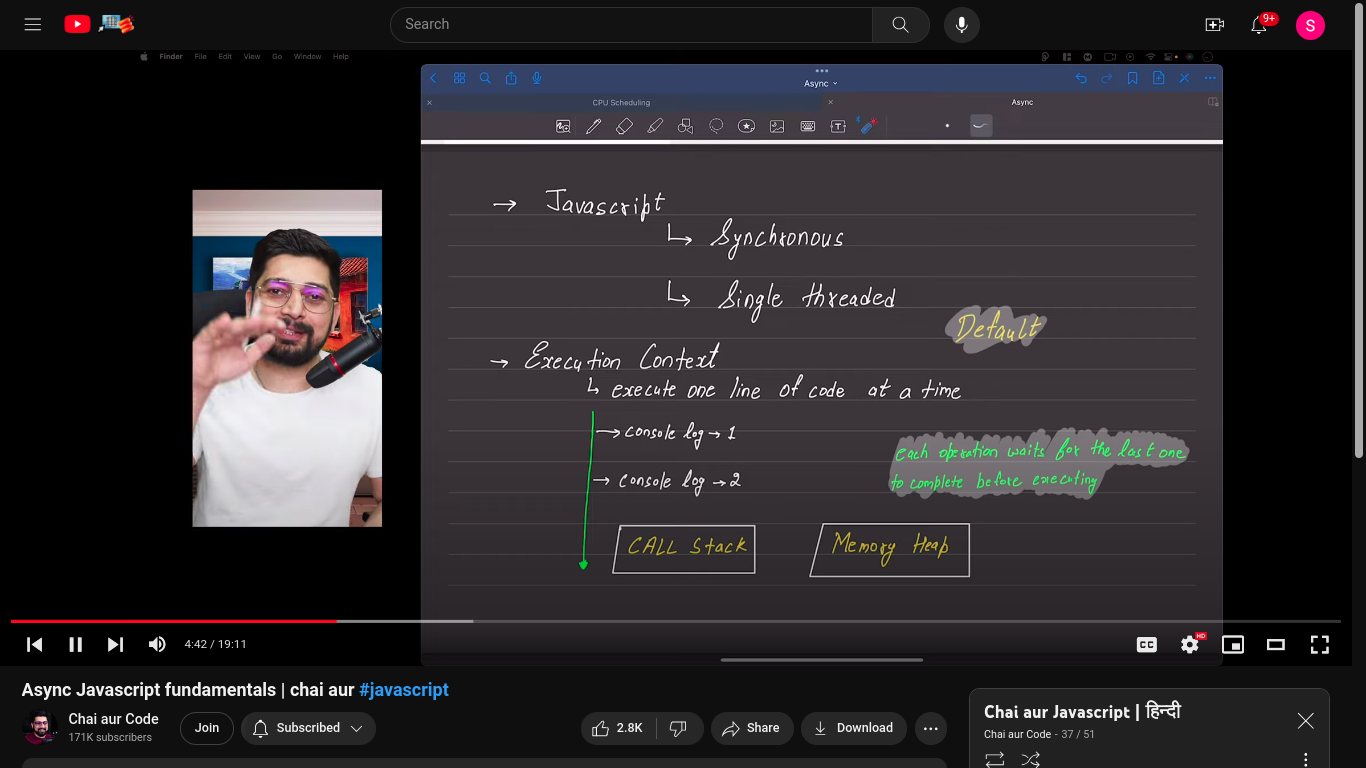 Search
9+
S
Finder File Edit View Go Window Help
Async
CPU Scheduling
Async
T
→ Javascript
↳ Synchronous
↳ Single threaded
Default
→ Execution Context
↳ execute one line of code at a time
→ console log → 1
each operation waits for the last one
to complete before executing
→ console log → 2
CALL Stack
Memory Heap
4:42 / 19:11
CC
HD
Async Javascript fundamentals | chai aur #javascript
Chai aur Code
171K subscribers
Join
Subscribed
2.8K
Share
Download
Chai aur Javascript | हिन्दी
Chai aur Code - 37 / 51